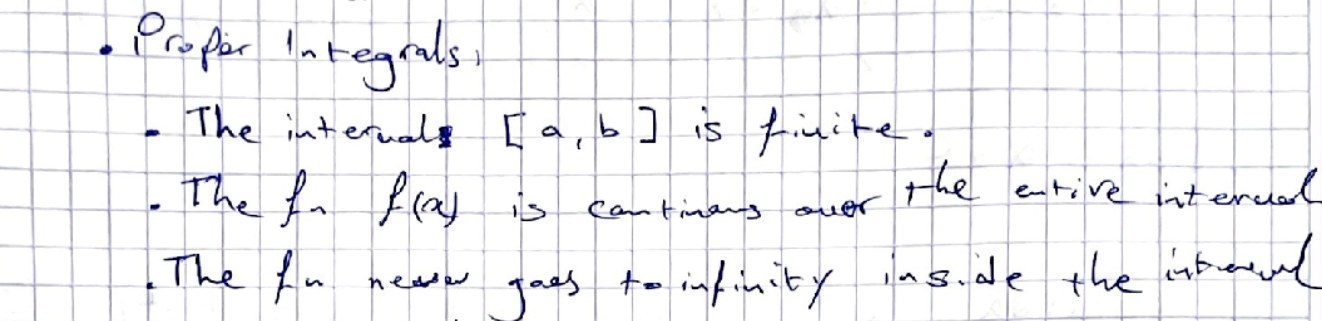 • Proper Integrals,
- The interval [a,b] is finite.
- The fn f(x) is continous over the entire interval
- The fn never goes to infinity inside the interval